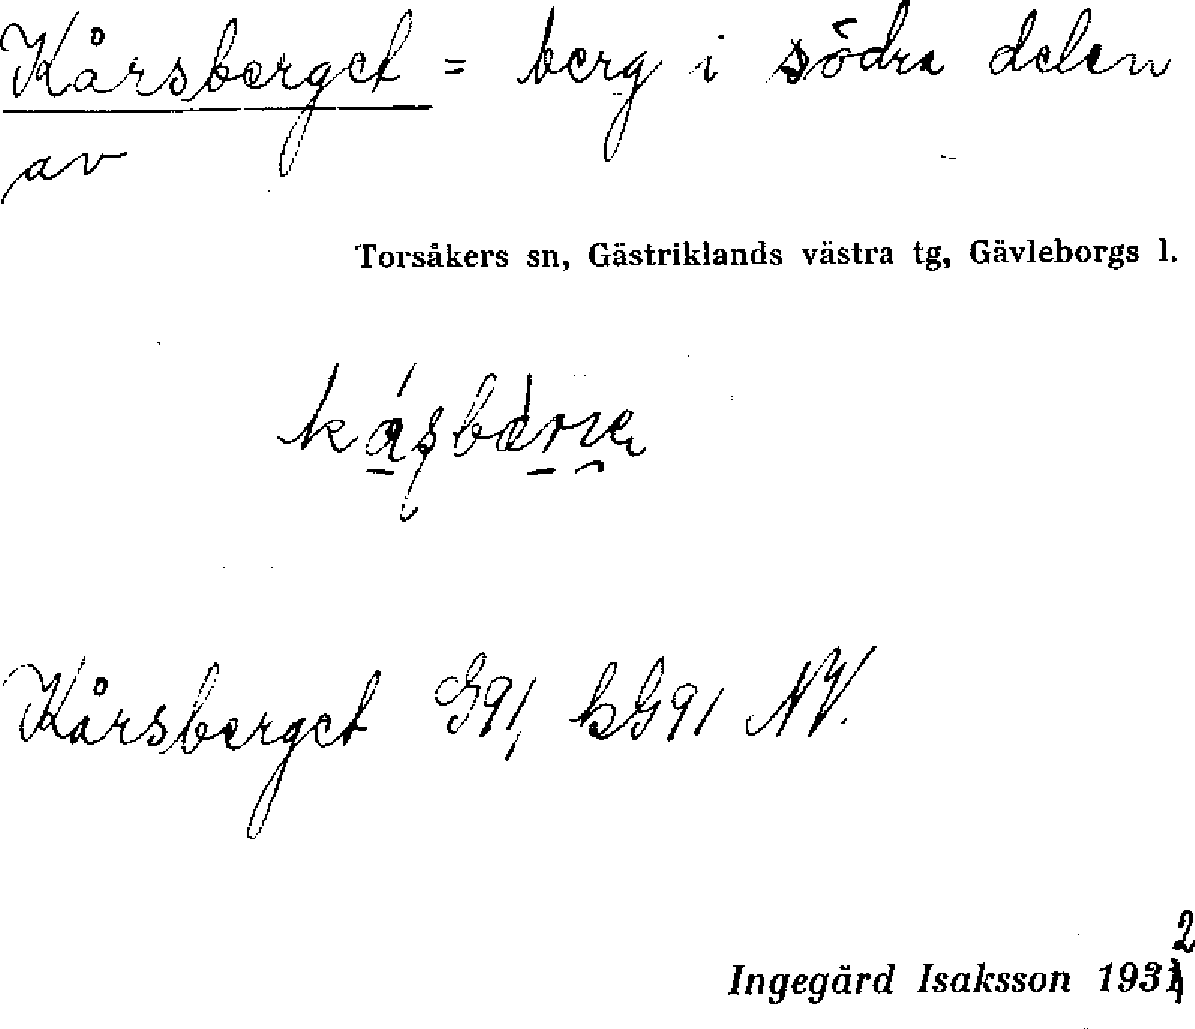 Kårsberget = berg i södra delen
av
Torsåkers sn, Gästriklands västra tg, Gävleborgs l.
Kårsberget G91, kG91 NV.
Ingegärd Isaksson 1932